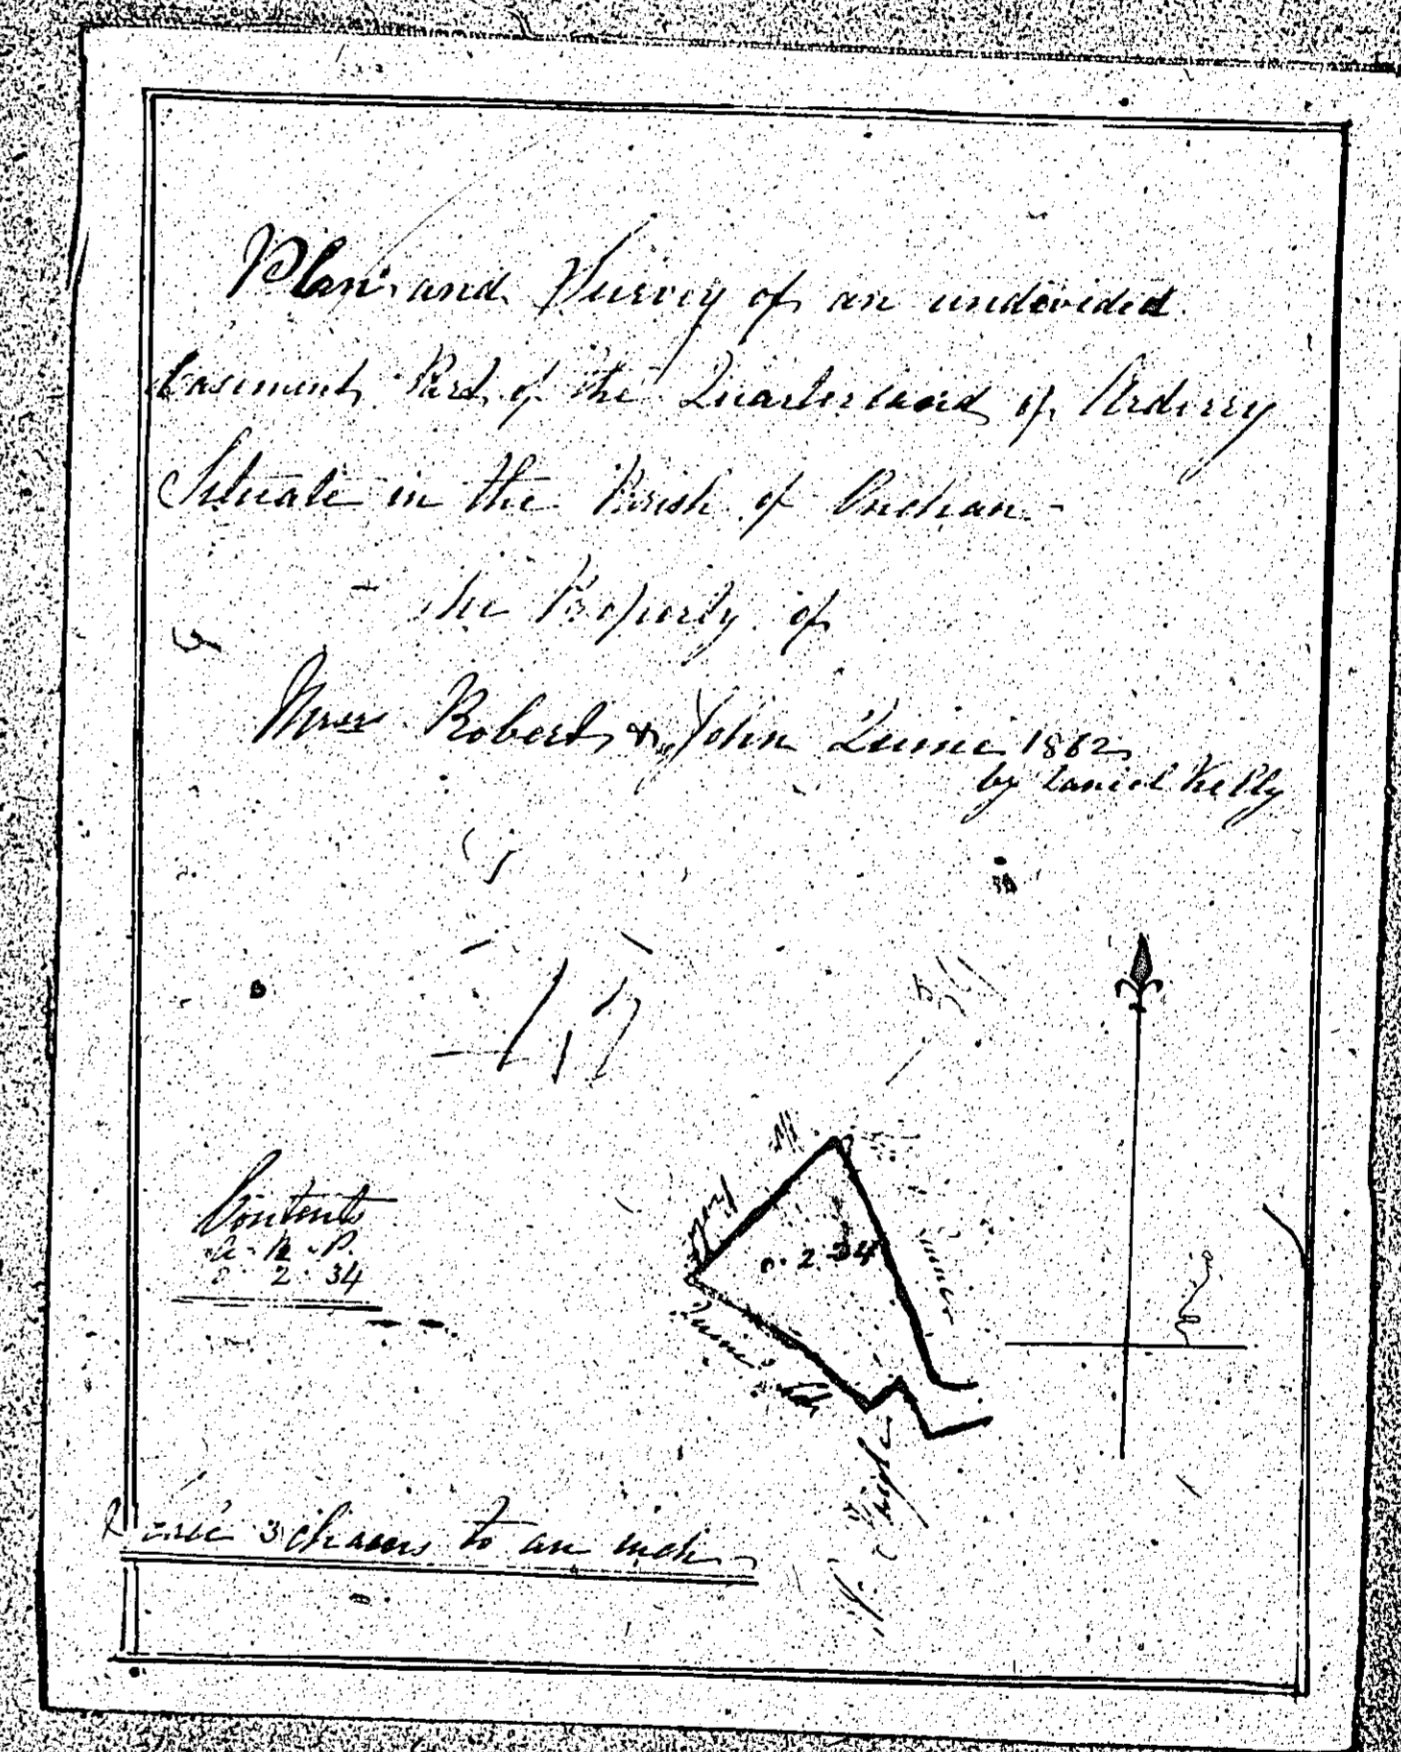 Plan and Survey of an undevided
Easement Part of the Quarterland of Arderry
Situate in the Parish of Onchan -
- the Property of
Messrs Robert & John Quine 1862
by Daniel Kelly
Contents
A. R. P.
0. 2. 34
0. 2. 34
Road
Quine's
Scale 3 chains to an inch